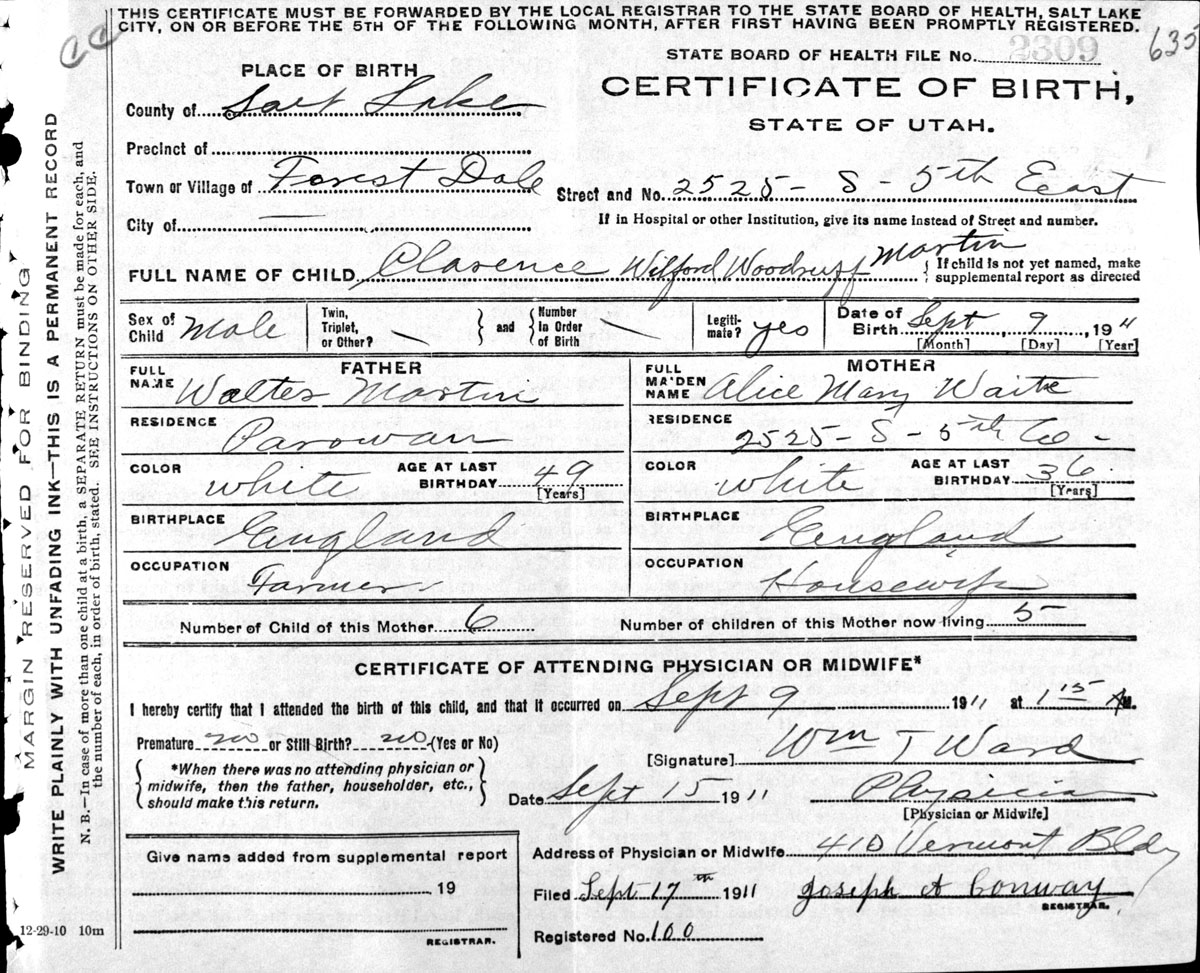 THIS CERTIFICATE MUST BE FORWARDED BY THE LOCAL REGISTRAR TO THE STATE BOARD OF HEALTH, SALT LAKE
CITY, ON OR BEFORE THE 5TH OF THE FOLLOWING MONTH, AFTER FIRST HAVING BEEN PROMPTLY REGISTERED.
CC
635
STATE BOARD OF HEALTH FILE No. 2309
PLACE OF BIRTH
CERTIFICATE OF BIRTH,
STATE OF UTAH.
County of Salt Lake
Precinct of
Town or Village of Forest Dale Street and No. 2525 - S - 5th East
If in Hospital or other Institution, give its name instead of Street and number.
City of
FULL NAME OF CHILD Clarence Wilford Woodruff Martin { If child is not yet named, make
supplemental report as directed
Sex of Child Male Twin, Triplet, or Other? } and { Number In Order of Birth Legiti-mate? yes Date of Birth Sept 9, 1911
[Month] [Day] [Year]
FATHER MOTHER
FULL NAME Walter Martin FULL MAIDEN NAME Alice Mary Waite
RESIDENCE Parowan RESIDENCE 2525 - S 5th E -
COLOR white AGE AT LAST BIRTHDAY 49 [Years] COLOR White AGE AT LAST BIRTHDAY 36 [Years]
BIRTHPLACE England BIRTHPLACE England
OCCUPATION Farmer OCCUPATION Housewife
Number of Child of this Mother 6 Number of children of this Mother now living 5
CERTIFICATE OF ATTENDING PHYSICIAN OR MIDWIFE*
I hereby certify that I attended the birth of this child, and that it occurred on Sept 9 1911 at 1 15 AM.
Premature no or Still Birth? no (Yes or No)
[Signature] Wm T Ward
{ *When there was no attending physician or
midwife, then the father, householder, etc.,
should make this return. }
Date Sept 15 1911 Physician
[Physician or Midwife]
Give name added from supplemental report
19
REGISTRAR.
Address of Physician or Midwife 410 Vermont Bldg
Filed Sept 17th 1911 Joseph A Conway
REGISTRAR.
Registered No. 100
12-29-10 10m
MARGIN RESERVED FOR BINDING
WRITE PLAINLY WITH UNFADING INK—THIS IS A PERMANENT RECORD
N. B.—In case of more than one child at a birth, a SEPARATE RETURN must be made for each, and
the number of each, in order of birth, stated. SEE INSTRUCTIONS ON OTHER SIDE.